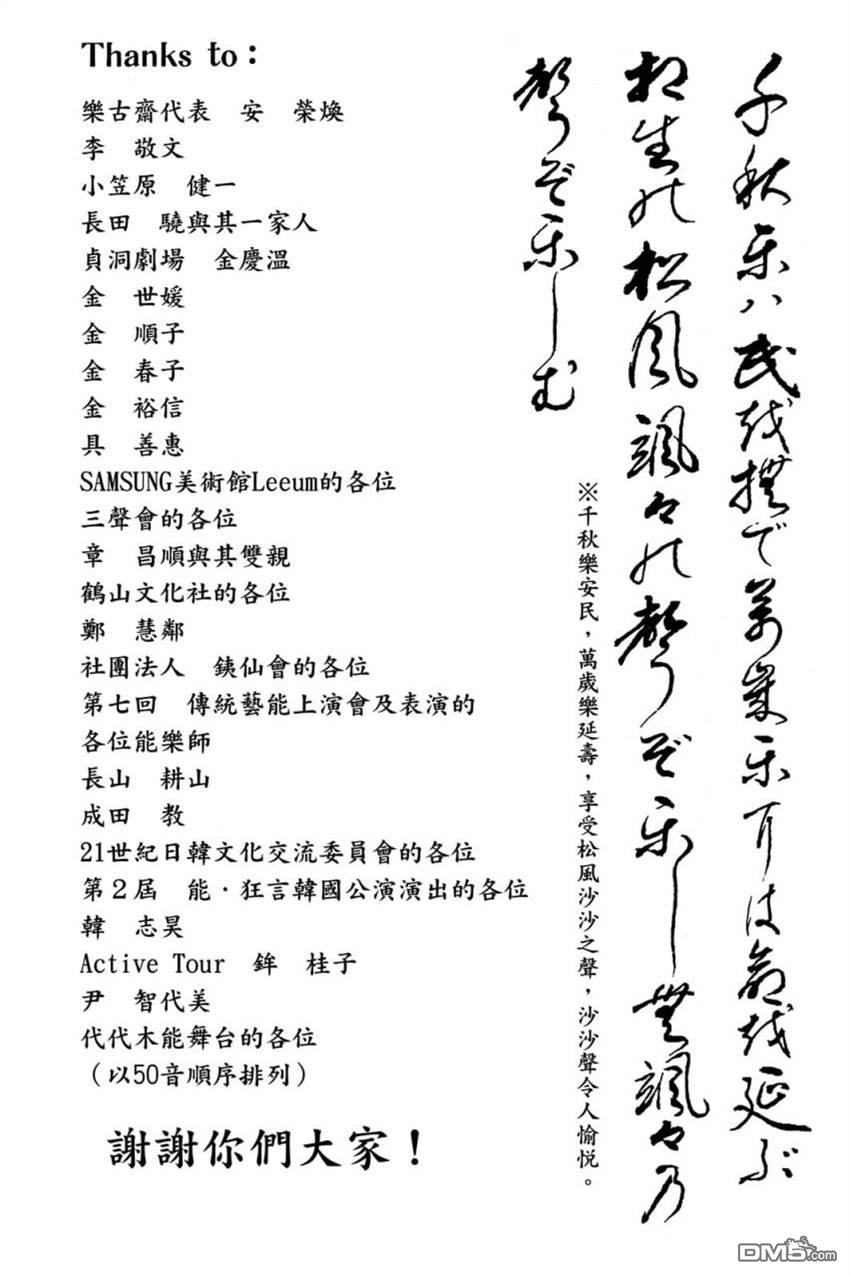 Thanks to：
樂古齋代表　安　榮煥
李　敬文
小笠原　健一
長田　驍與其一家人
貞洞劇場　金慶溫
金　世媛
金　順子
金　春子
金　裕信
具　善惠
SAMSUNG美術館Leeum的各位
三聲會的各位
章　昌順與其雙親
鶴山文化社的各位
鄭　慧鄰
社團法人　銕仙會的各位
第七回　傳統藝能上演會及表演的
各位能樂師
長山　耕山
成田　教
21世紀日韓文化交流委員會的各位
第２屆　能‧狂言韓國公演演出的各位
韓　志昊
Active Tour　鉾　桂子
尹　智代美
代代木能舞台的各位
（以50音順序排列）
謝謝你們大家！
千秋乐ハ民越撫で萬歳乐耳は命越延ぶ
相生能松風颯々能聲ぞ乐し無颯々乃
聲ぞ乐しむ
※千秋樂安民，萬歲樂延壽，享受松風沙沙之聲，沙沙聲令人愉悅。
DM5.com